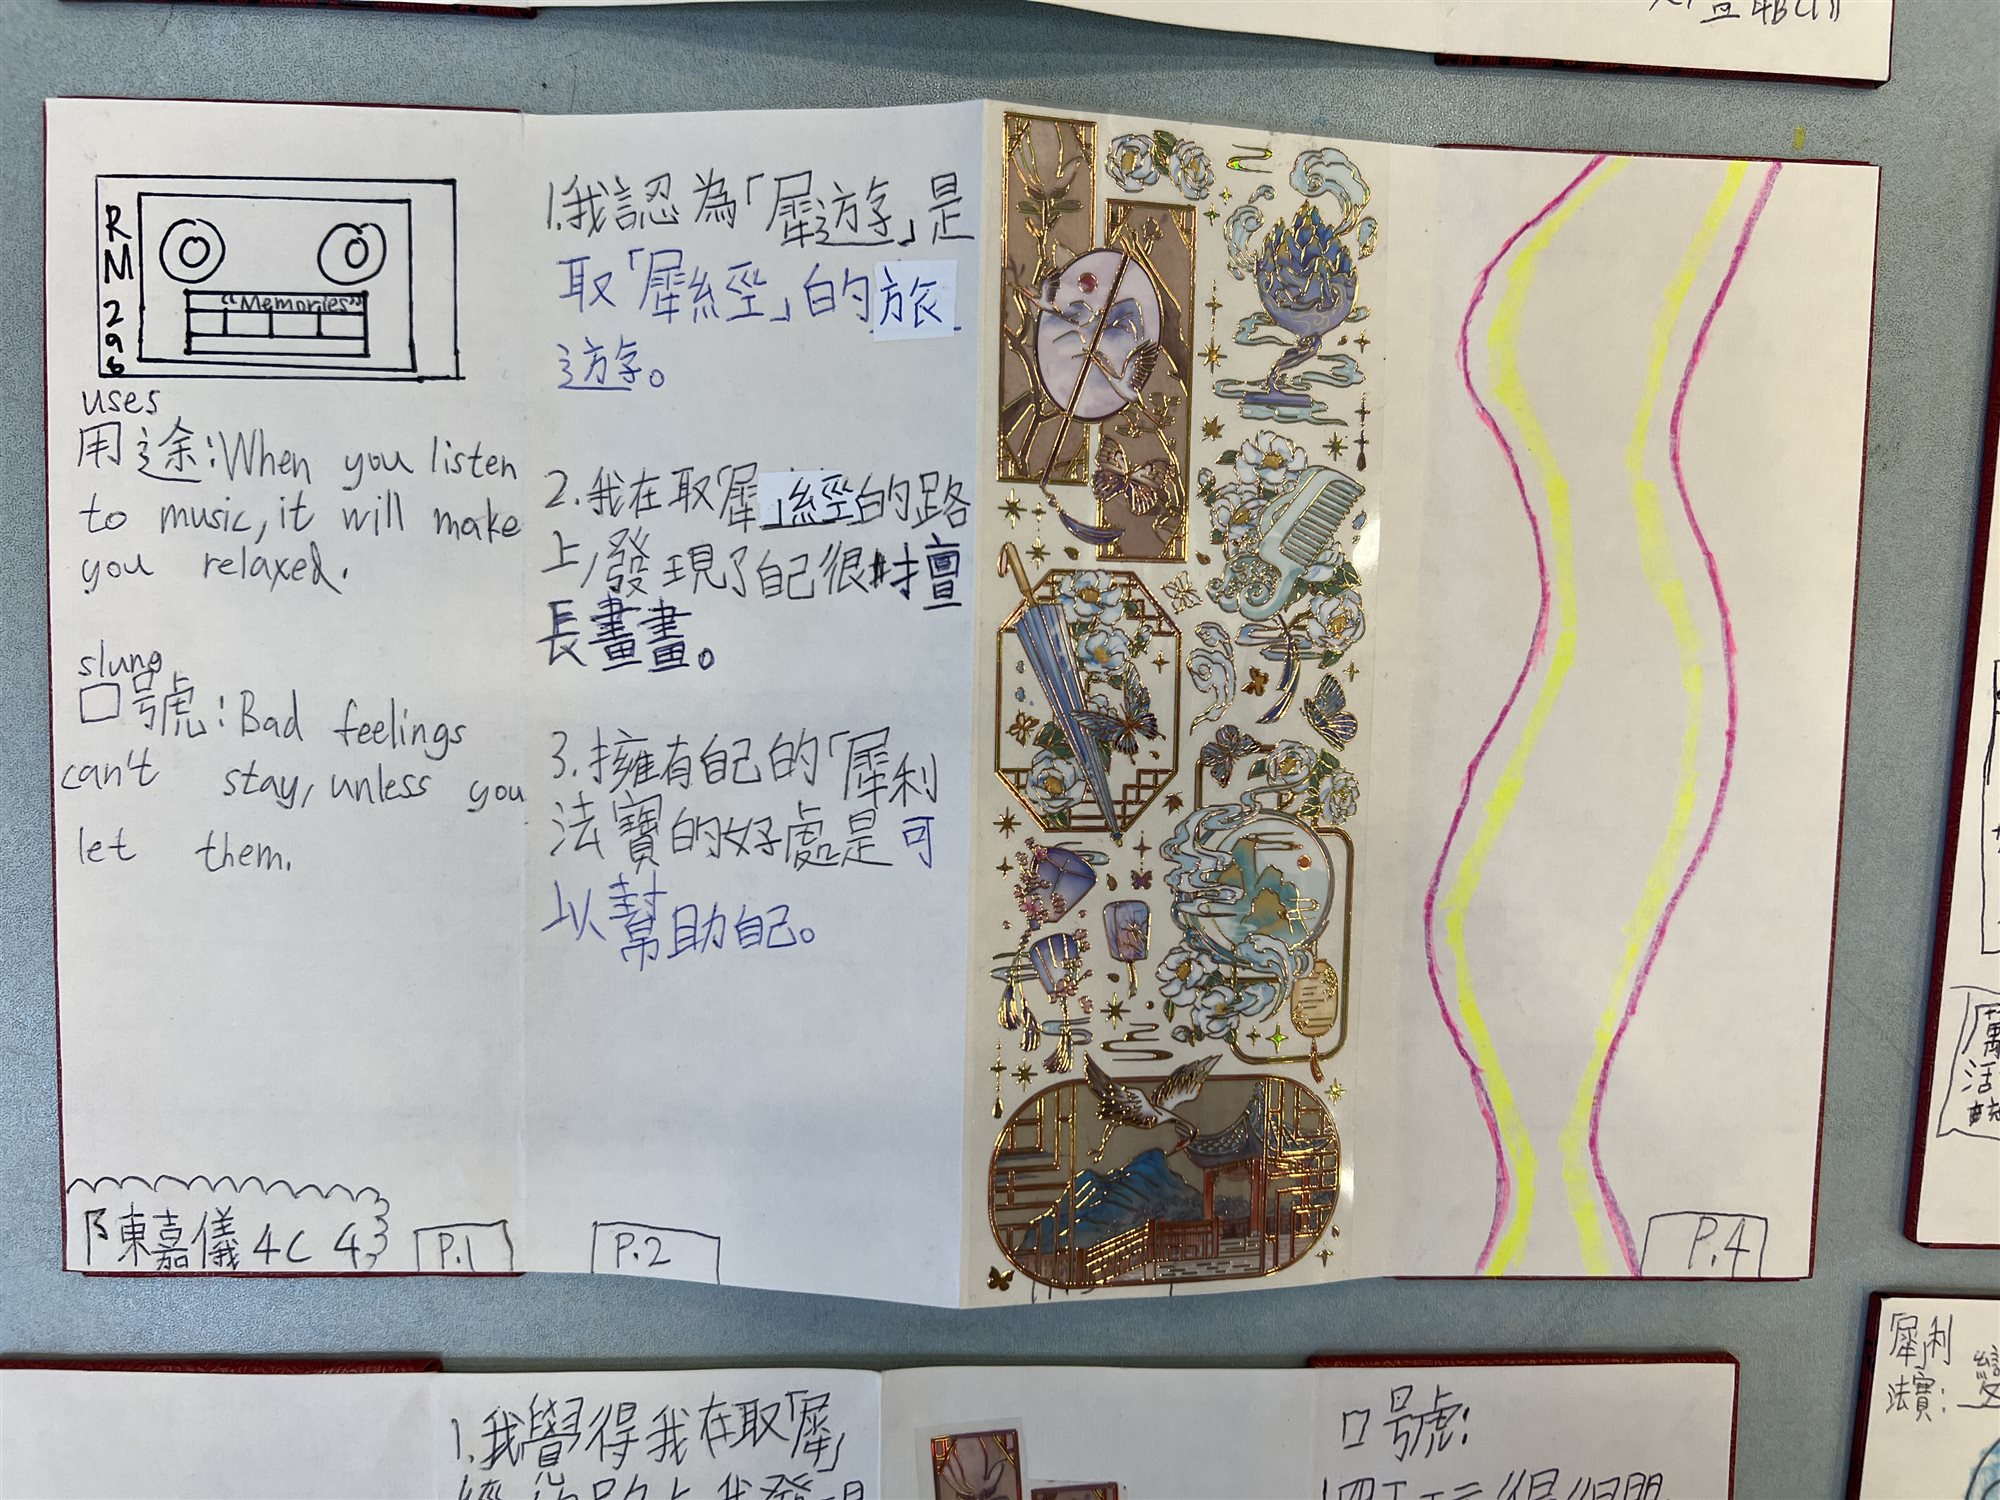 RM296
"Memories"
uses
用途:When you listen
to music, it will make
you relaxed.
slung
口號:Bad feelings
can't stay, unless you
let them.
陳嘉儀 4C 4
P.1
1.我認為「犀遊」是
取「犀經」的旅
遊。
2.我在取「犀」經的路
上,發現了自己很擅
長畫畫。
3.擁有自己的「犀利
法寶的好處是可
以幫助自己。
P.2
P.4
1.我覺得我在取「犀」
口號:
「犀」利
法寶: